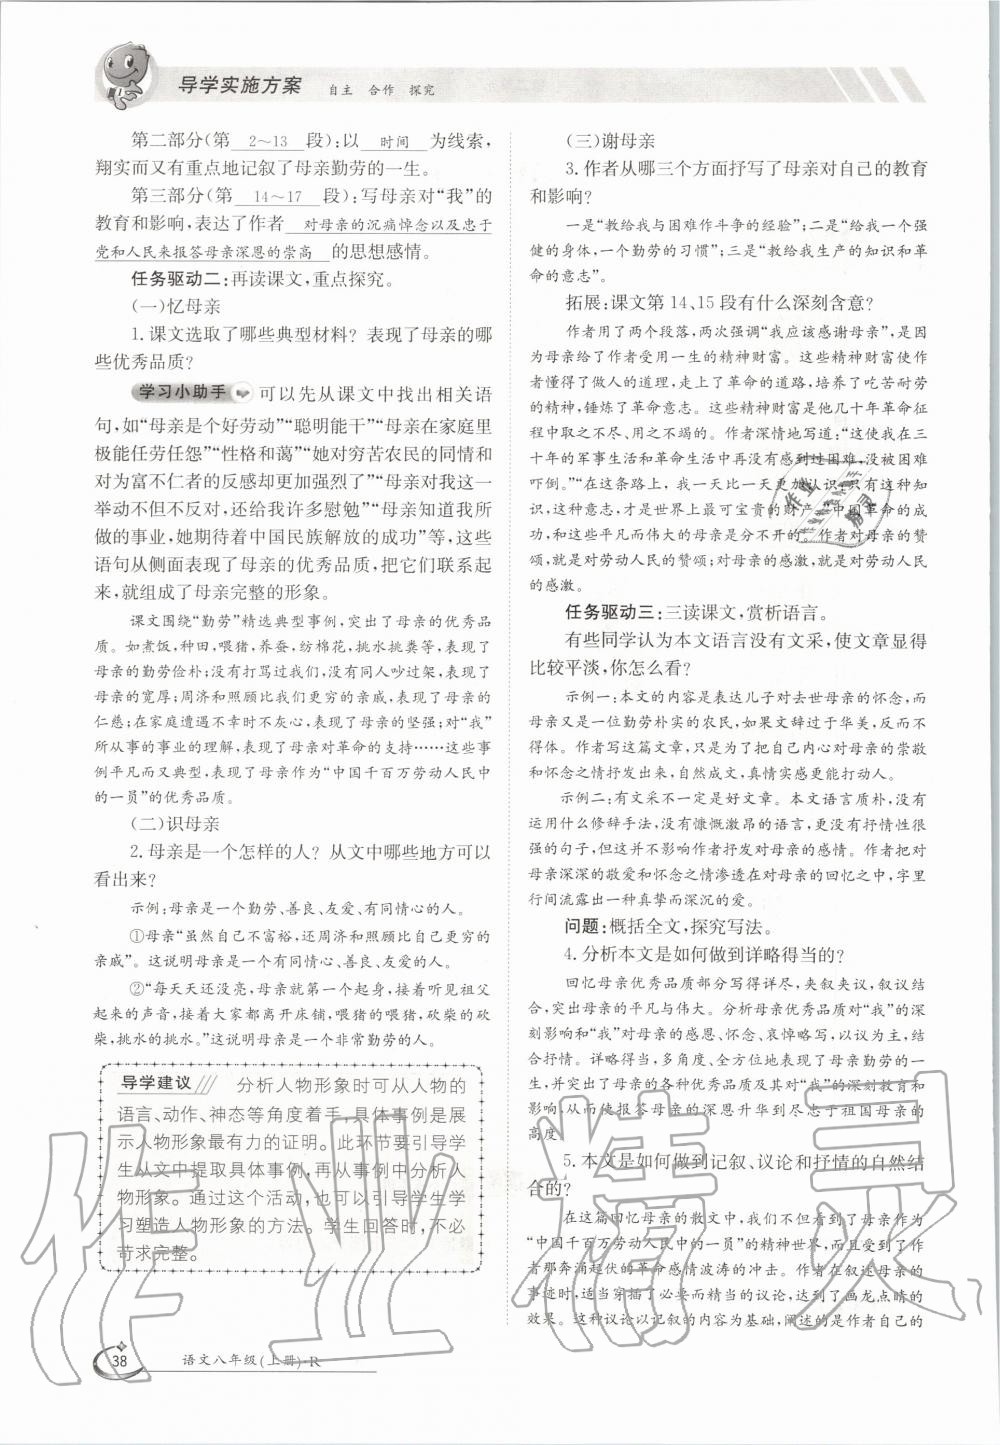 导学实施方案 自主 合作 探究
第二部分(第 2～13 段):以 时间 为线索,
翔实而又有重点地记叙了母亲勤劳的一生。
第三部分(第 14～17 段):写母亲对“我”的
教育和影响,表达了作者 对母亲的沉痛悼念以及忠于
党和人民来报答母亲深恩的崇高 的思想感情。
任务驱动二:再读课文,重点探究。
(一)忆母亲
1.课文选取了哪些典型材料? 表现了母亲的哪
些优秀品质?
学习小助手 可以先从课文中找出相关语
句,如“母亲是个好劳动”“聪明能干”“母亲在家庭里
极能任劳任怨”“性格和蔼”“她对穷苦农民的同情和
对为富不仁者的反感却更加强烈了”“母亲对我这一
举动不但不反对,还给我许多慰勉”“母亲知道我所
做的事业,她期待着中国民族解放的成功”等,这些
语句从侧面表现了母亲的优秀品质,把它们联系起
来,就组成了母亲完整的形象。
课文围绕“勤劳”精选典型事例,突出了母亲的优秀品
质。如煮饭,种田,喂猪,养蚕,纺棉花,挑水挑粪等,表现了
母亲的勤劳俭朴;没有打骂过我们,没有同人吵过架,表现了
母亲的宽厚;周济和照顾比我们更穷的亲戚,表现了母亲的
仁慈;在家庭遭遇不幸时不灰心,表现了母亲的坚强;对“我”
所从事的事业的理解,表现了母亲对革命的支持……这些事
例平凡而又典型,表现了母亲作为“中国千百万劳动人民中
的一员”的优秀品质。
(二)识母亲
2.母亲是一个怎样的人? 从文中哪些地方可以
看出来?
示例:母亲是一个勤劳、善良、友爱、有同情心的人。
①母亲“虽然自己不富裕,还周济和照顾比自己更穷的
亲戚”。这说明母亲是一个有同情心、善良、友爱的人。
②“每天天还没亮,母亲就第一个起身,接着听见祖父
起来的声音,接着大家都离开床铺,喂猪的喂猪,砍柴的砍
柴,挑水的挑水。”这说明母亲是一个非常勤劳的人。
导学建议 分析人物形象时可从人物的
语言、动作、神态等角度着手,具体事例是展
示人物形象最有力的证明。此环节要引导学
生从文中提取具体事例,再从事例中分析人
物形象。通过这个活动,也可以引导学生学
习塑造人物形象的方法。学生回答时,不必
苛求完整。
38 语文八年级(上册)·R
(三)谢母亲
3.作者从哪三个方面抒写了母亲对自己的教育
和影响?
一是“教给我与困难作斗争的经验”;二是“给我一个强
健的身体,一个勤劳的习惯”;三是“教给我生产的知识和革
命的意志”。
拓展:课文第14、15段有什么深刻含意?
作者用了两个段落,两次强调“我应该感谢母亲”,是母
亲给予了作者受用一生的精神财富。这些精神财富使作
者懂得了做人的道理,走上了革命的道路,培养了吃苦耐劳
的精神,锤炼了革命意志。这些精神财富是他几十年革命征
程中取之不尽、用之不竭的。作者深情地写道:“这使我在三
十年的军事生活和革命生活中再没有感到过困难,没有被困难
吓倒。”“在这条路上,我一天比一天更加认识:只有这种知
识,这种意志,才是世界上最可宝贵的财产。”中国革命的成
功,和这些平凡而伟大的母亲是分不开的。作者对母亲的赞
颂,就是对劳动人民的赞颂;对母亲的感激,就是对劳动人民
的感激。
任务驱动三:三读课文,赏析语言。
有些同学认为本文语言没有文采,使文章显得
比较平淡,你怎么看?
示例一:本文的内容是表达儿子对去世母亲的怀念,而
母亲又是一位勤劳朴实的农民,如果文辞过于华美,反而不
得体。作者写这篇文章,只是为了把自己内心对母亲的崇敬
和怀念之情抒发出来,自然成文,真情实感更能打动人。
示例二:有文采不一定是好文章。本文语言质朴,没有
运用什么修辞手法,没有慷慨激昂的语言,更没有抒情性很
强的句子,但这并不影响作者抒发对母亲的感情。作者把对
母亲深深的敬爱和怀念之情渗透在对母亲的回忆之中,字里
行间流露出一种真挚而深沉的爱。
问题:概括全文,探究写法。
4.分析本文是如何做到详略得当的?
回忆母亲优秀品质部分写得详尽,夹叙夹议,叙议结
合,突出母亲的平凡与伟大。分析母亲优秀品质对“我”的深
刻影响和“我”对母亲的感恩、怀念、哀悼略写,以议为主,结
合抒情。详略得当,多角度、全方位地表现了母亲勤劳的一
生,并突出了母亲的各种优秀品质及其对“我”的深刻教育和
影响,从而使报答母亲的深恩升华到尽忠于祖国母亲的
高度。
5.本文是如何做到记叙、议论和抒情的自然结
合的?
在这篇回忆母亲的散文中,我们不但看到了母亲作为
“中国千百万劳动人民中的一员”的精神世界,而且受到了作
者那奔涌起伏的革命感情波涛的冲击。作者在叙述母亲的
事迹时,适当穿插了必要而精当的议论,达到了画龙点睛的效
果。这种议论以记叙的内容为基础,阐述的是作者自己的
作业精灵
作业精灵